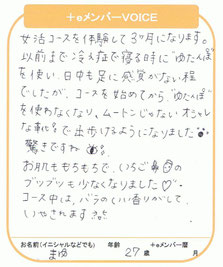 +eメンバーVOICE
女活コースを体験して3ヶ月になります。
以前まで冷え症で寝る時に“ゆたんぽ”
を使い、日中も足に感覚がない程
でしたが、コースを始めてから、“ゆたんぽ”
を使わなくなり、ムートンじゃないオシャレ
な靴で出歩けるようになりました
驚きですね
お肌ももちもちで、いちご鼻の
ブツブツも少なくなりました♡
コース中は、バラのいい香りがして、
いやされます
お名前(イニシャルなどでも) 年齢 +eメンバー暦
まゆ 27歳 月